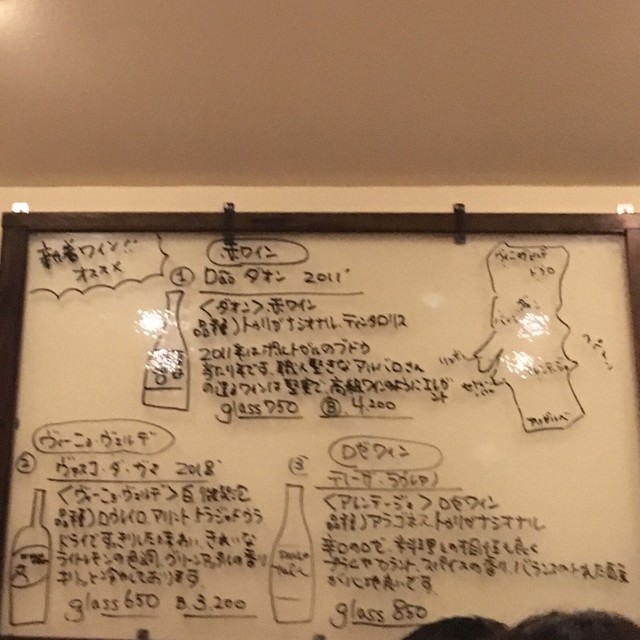 新着ワイン!!
オススメ
赤ワイン
① Dão ダオン 2011'
＜ダオン＞赤ワイン
品種）トゥリガナショナル、ティンタロリス
2011年はポルトガルのブドウ
当たり年です。職人堅きなアルバロさん
の造るワインは堅実で、高級ワインのようにエレガント
glass 750 Ⓑ. 4,200
ヴィーニョ・ヴェルデ
② ヴァスコ・ダ・ガマ 2018'
＜ヴィーニョ・ヴェルデ＞白 微発泡
品種）ロウレイロ、アリント、トラジャドゥラ
ドライですっきりした味わい、きれいな
ライトレモンの色調、グリーンアップルの香り
キリッと冷やしてあります。
glass 650 B. 3,200
ロゼワイン
③
＜アレンテージョ＞ロゼワイン
品種）アラゴネス、トゥリガナショナル
辛口ので、料理との相性も良く
スパイスの香り、バランスのとれた
が心地良いです。
glass 850
ダン
リスボン
アレンテージョ
スペイン
アルガルベ